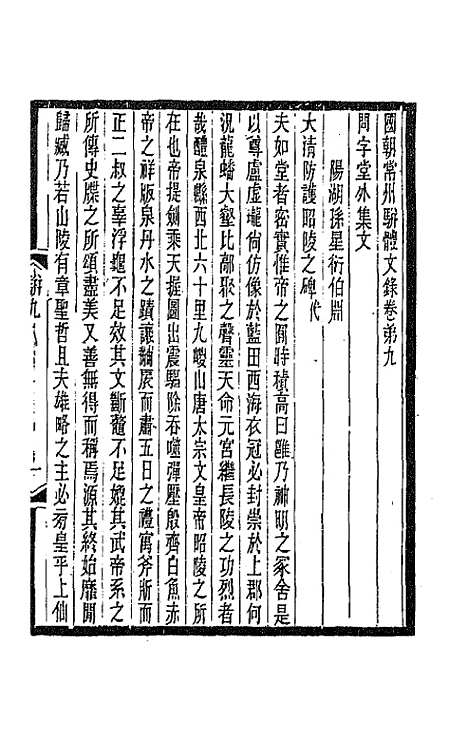 國朝常州駢體文錄卷弟九
問字堂外集文
陽湖孫星衍伯淵
大清防護昭陵之碑 代
夫如堂者密實惟帝之囿時積高曰雝乃神明之冢舍是
以尊盧虛壠尙仿像於藍田西海衣冠必封崇於上郡何
況龍蟠大壑比鄗聚之聲靈天命元宮繼長陵之功烈者
哉醴泉縣西北六十里九嵕山唐太宗文皇帝昭陵之所
在也帝提劍乘天握圖出震驅除吞噬彈壓殷齊白魚赤
帝之祥版泉丹水之蹟讓黼扆而肅五日之禮寓斧斨而
正二叔之辜浮龜不足效其文斷鼇不足媲其武帝系之
所傳史牒之所頌盡美又善無得而稱焉源其終始靡聞
歸臧乃若山陵有章聖哲且夫雄略之主必侈皇乎上仙